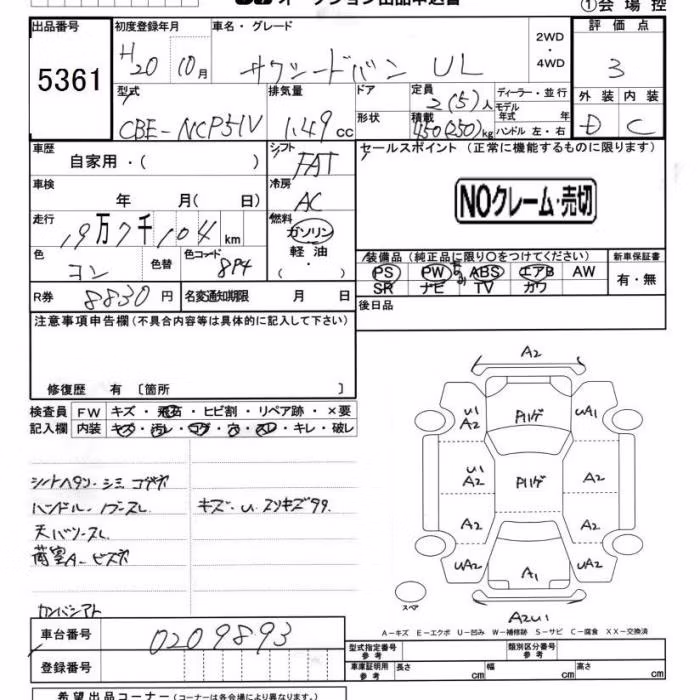 オークション出品申込書
①会場控
出品番号
5361
初度登録年月
H20 10月
車名・グレード
サクシードバン UL
2WD
・
4WD
評価点
3
型式
CBE-NCP51V
排気量
1.49cc
ドア
形状
定員
2(5)人
積載
450(250)kg
ディーラー・並行
モデル年式 年
ハンドル 左・右
外装 内装
D C
車歴
自家用・( )
シフト
FAT
セールスポイント (正常に機能するものに限ります)
NOクレーム・売切
車検
年 月( 日)
冷房
AC
走行
19万7千104km
燃料
ガソリン
軽油
( ・ )
色
コン
色替
色コード 8P4
装備品 (純正品に限り○をつけてください)
PS PW ABS エアB AW
SR ナビ TV カワ
新車保証書
有・無
R券 8830円
名変通知期限 月 日
後日品
注意事項申告欄(不具合内容等は具体的に記入して下さい)
修復歴 有 〔箇所 〕
検査員
記入欄
FW キズ・飛石・ヒビ割・リペア跡・×要
内装 キズ・汚レ・コゲ・穴・スレ・キレ・破レ
シートヘタリ・シミ コゲ穴
ハンドル・ノブスレ
キズ・U・スリキズ多々
天バリスレ
荷室A-ビス穴
A2
U1
A2
UA1
U1
A2
A2
A2
A2
UA2
A1
UA2
スペア
A2U1
A-キズ E-エクボ U-凹み W-補修跡 S-サビ C-腐食 XX-交換済
車台番号
0209893
登録番号
型式指定番号 参考
類別区分番号 参考
車庫証明用 参考
長さ cm
幅 cm
高さ cm
希望出品コーナー(コーナーは各会場により異なります。)